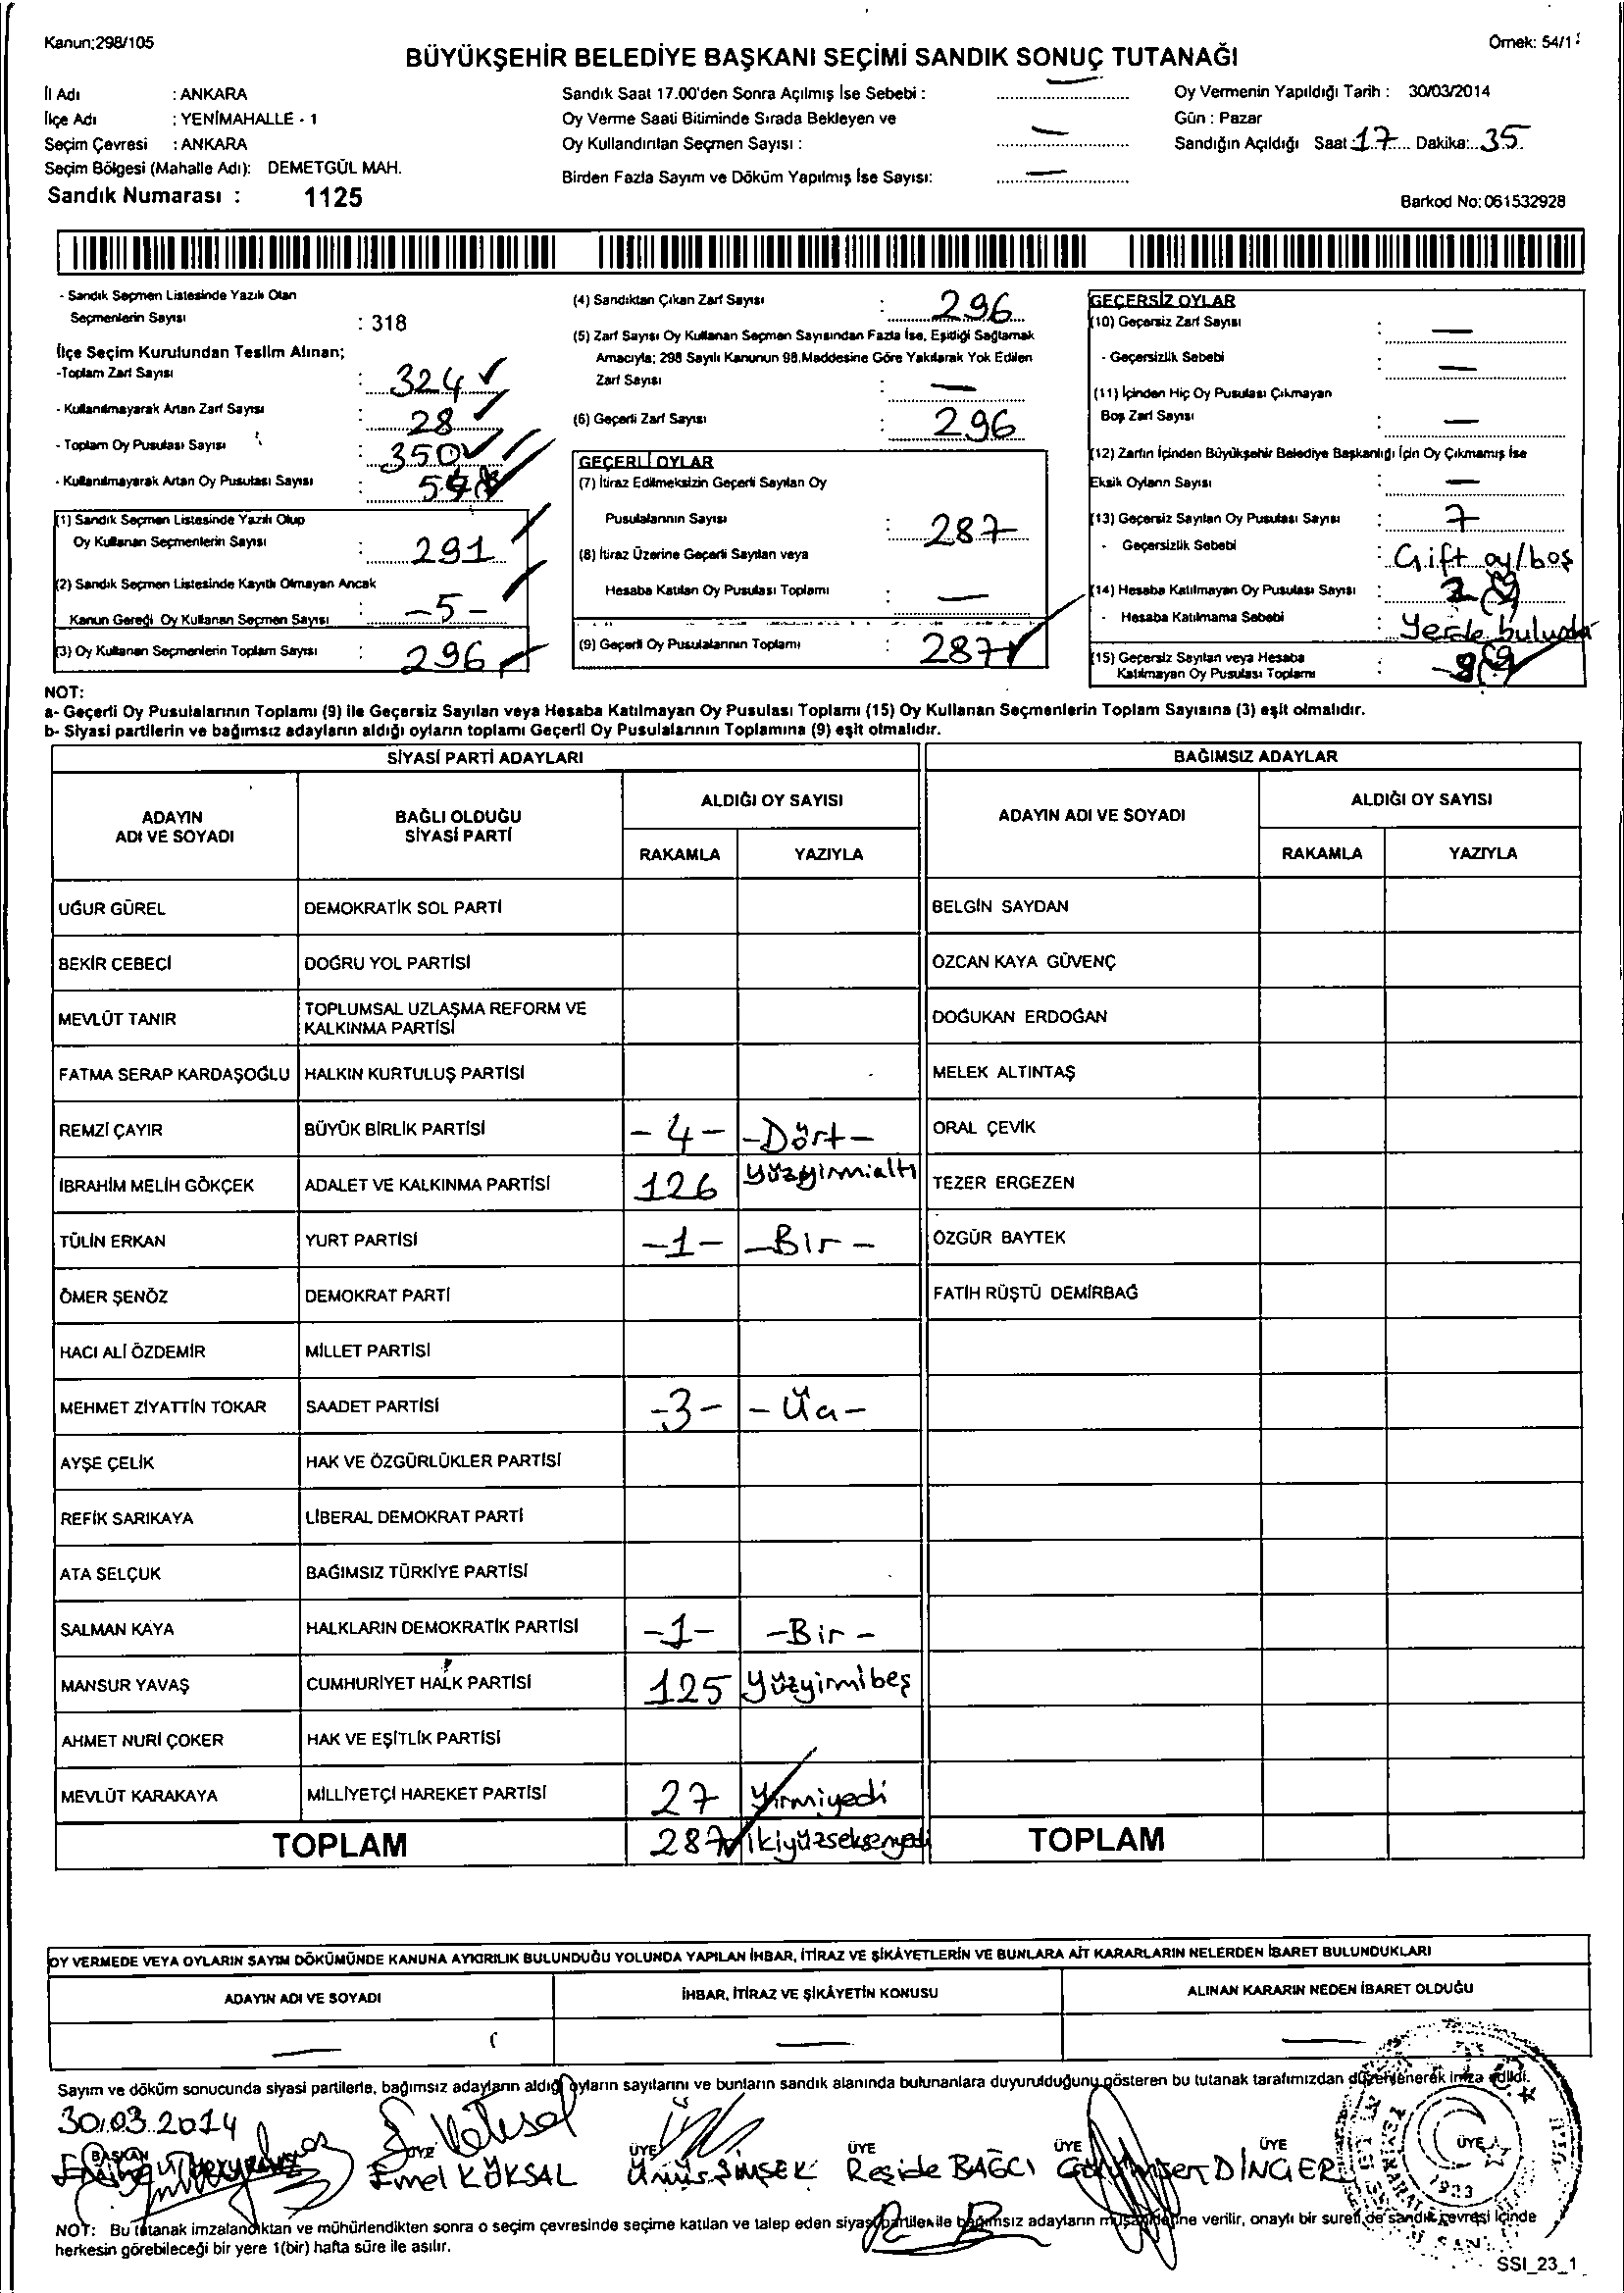 Kanun;298/105
Örnek: 54/1
BÜYÜKŞEHİR BELEDİYE BAŞKANI SEÇİMİ SANDIK SONUÇ TUTANAĞI
İl Adı : ANKARA
İlçe Adı : YENİMAHALLE - 1
Seçim Çevresi : ANKARA
Seçim Bölgesi (Mahalle Adı): DEMETGÜL MAH.
Sandık Numarası : 1125
Sandık Saat 17.00'den Sonra Açılmış İse Sebebi : —
Oy Verme Saati Bitiminde Sırada Bekleyen ve
Oy Kullandırılan Seçmen Sayısı : —
Birden Fazla Sayım ve Döküm Yapılmış İse Sayısı: —
Oy Vermenin Yapıldığı Tarih : 30/03/2014
Gün : Pazar
Sandığın Açıldığı Saat: 17 Dakika: 35
Barkod No: 061532928
- Sandık Seçmen Listesinde Yazılı Olan
Seçmenlerin Sayısı : 318
İlçe Seçim Kurulundan Teslim Alınan;
-Toplam Zarf Sayısı : 324
- Kullanılmayarak Artan Zarf Sayısı : 28
- Toplam Oy Pusulası Sayısı : 350
- Kullanılmayarak Artan Oy Pusulası Sayısı :
(1) Sandık Seçmen Listesinde Yazılı Olup
Oy Kullanan Seçmenlerin Sayısı : 291
(2) Sandık Seçmen Listesinde Kayıtlı Olmayan Ancak
Kanun Gereği Oy Kullanan Seçmen Sayısı : -5-
(3) Oy Kullanan Seçmenlerin Toplam Sayısı : 296
(4) Sandıktan Çıkan Zarf Sayısı : 296
(5) Zarf Sayısı Oy Kullanan Seçmen Sayısından Fazla İse, Eşitliği Sağlamak
Amacıyla; 298 Sayılı Kanunun 98.Maddesine Göre Yakılarak Yok Edilen
Zarf Sayısı : —
(6) Geçerli Zarf Sayısı : 296
GEÇERLİ OYLAR
(7) İtiraz Edilmeksizin Geçerli Sayılan Oy
Pusulalarının Sayısı : 287
(8) İtiraz Üzerine Geçerli Sayılan veya
Hesaba Katılan Oy Pusulası Toplamı : —
(9) Geçerli Oy Pusulalarının Toplamı : 287
GEÇERSİZ OYLAR
(10) Geçersiz Zarf Sayısı : —
- Geçersizlik Sebebi : —
(11) İçinden Hiç Oy Pusulası Çıkmayan
Boş Zarf Sayısı : —
(12) Zarfın İçinden Büyükşehir Belediye Başkanlığı İçin Oy Çıkmamış İse
Eksik Oyların Sayısı : —
(13) Geçersiz Sayılan Oy Pusulası Sayısı : 7
- Geçersizlik Sebebi : Çift oy/boş
(14) Hesaba Katılmayan Oy Pusulası Sayısı :
- Hesaba Katılmama Sebebi : Yerde
(15) Geçersiz Sayılan veya Hesaba
Katılmayan Oy Pusulası Toplamı :
NOT:
a- Geçerli Oy Pusulalarının Toplamı (9) ile Geçersiz Sayılan veya Hesaba Katılmayan Oy Pusulası Toplamı (15) Oy Kullanan Seçmenlerin Toplam Sayısına (3) eşit olmalıdır.
b- Siyasi partilerin ve bağımsız adayların aldığı oyların toplamı Geçerli Oy Pusulalarının Toplamına (9) eşit olmalıdır.
SİYASİ PARTİ ADAYLARI
BAĞIMSIZ ADAYLAR
ADAYIN ADI VE SOYADI
BAĞLI OLDUĞU SİYASİ PARTİ
ALDIĞI OY SAYISI
RAKAMLA YAZIYLA
ADAYIN ADI VE SOYADI
ALDIĞI OY SAYISI
RAKAMLA YAZIYLA
UĞUR GÜREL DEMOKRATİK SOL PARTİ BELGİN SAYDAN
BEKİR CEBECİ DOĞRU YOL PARTİSİ ÖZCAN KAYA GÜVENÇ
MEVLÜT TANIR TOPLUMSAL UZLAŞMA REFORM VE KALKINMA PARTİSİ DOĞUKAN ERDOĞAN
FATMA SERAP KARDAŞOĞLU HALKIN KURTULUŞ PARTİSİ MELEK ALTINTAŞ
REMZİ ÇAYIR BÜYÜK BİRLİK PARTİSİ -4- -Dört- ORAL ÇEVİK
İBRAHİM MELİH GÖKÇEK ADALET VE KALKINMA PARTİSİ 126 Yüzyirmialtı TEZER ERGEZEN
TÜLİN ERKAN YURT PARTİSİ -1- -Bir- ÖZGÜR BAYTEK
ÖMER ŞENÖZ DEMOKRAT PARTİ FATİH RÜŞTÜ DEMİRBAĞ
HACI ALİ ÖZDEMİR MİLLET PARTİSİ
MEHMET ZİYATTİN TOKAR SAADET PARTİSİ -3- -Üç-
AYŞE ÇELİK HAK VE ÖZGÜRLÜKLER PARTİSİ
REFİK SARIKAYA LİBERAL DEMOKRAT PARTİ
ATA SELÇUK BAĞIMSIZ TÜRKİYE PARTİSİ
SALMAN KAYA HALKLARIN DEMOKRATİK PARTİSİ -1- -Bir-
MANSUR YAVAŞ CUMHURİYET HALK PARTİSİ 125 Yüzyirmibeş
AHMET NURİ ÇOKER HAK VE EŞİTLİK PARTİSİ
MEVLÜT KARAKAYA MİLLİYETÇİ HAREKET PARTİSİ 27 Yirmiyedi
TOPLAM 287 ikiyüzseksenyedi TOPLAM
OY VERMEDE VEYA OYLARIN SAYIM DÖKÜMÜNDE KANUNA AYKIRILIK BULUNDUĞU YOLUNDA YAPILAN İHBAR, İTİRAZ VE ŞİKÂYETLERİN VE BUNLARA AİT KARARLARIN NELERDEN İBARET BULUNDUKLARI
ADAYIN ADI VE SOYADI İHBAR, İTİRAZ VE ŞİKÂYETİN KONUSU ALINAN KARARIN NEDEN İBARET OLDUĞU
— — —
Sayım ve döküm sonucunda siyasi partilerle, bağımsız adayların aldığı oyların sayılarını ve bunların sandık alanında bulunanlara duyurulduğunu gösteren bu tutanak tarafımızdan düzenlenerek imza edildi.
30.03.2014
BAŞKAN ÜYE ÜYE ÜYE ÜYE ÜYE ÜYE
Emel KÖKSAL ŞİMŞEK Reşide BAĞCI DİNÇER
1923
NOT: Bu tutanak imzalandıktan ve mühürlendikten sonra o seçim çevresinde seçime katılan ve talep eden siyasi partiler ile bağımsız adayların müşahidlerine verilir, onaylı bir sureti de sandık çevresi içinde
herkesin görebileceği bir yere 1(bir) hafta süre ile asılır.
SSI_23_1